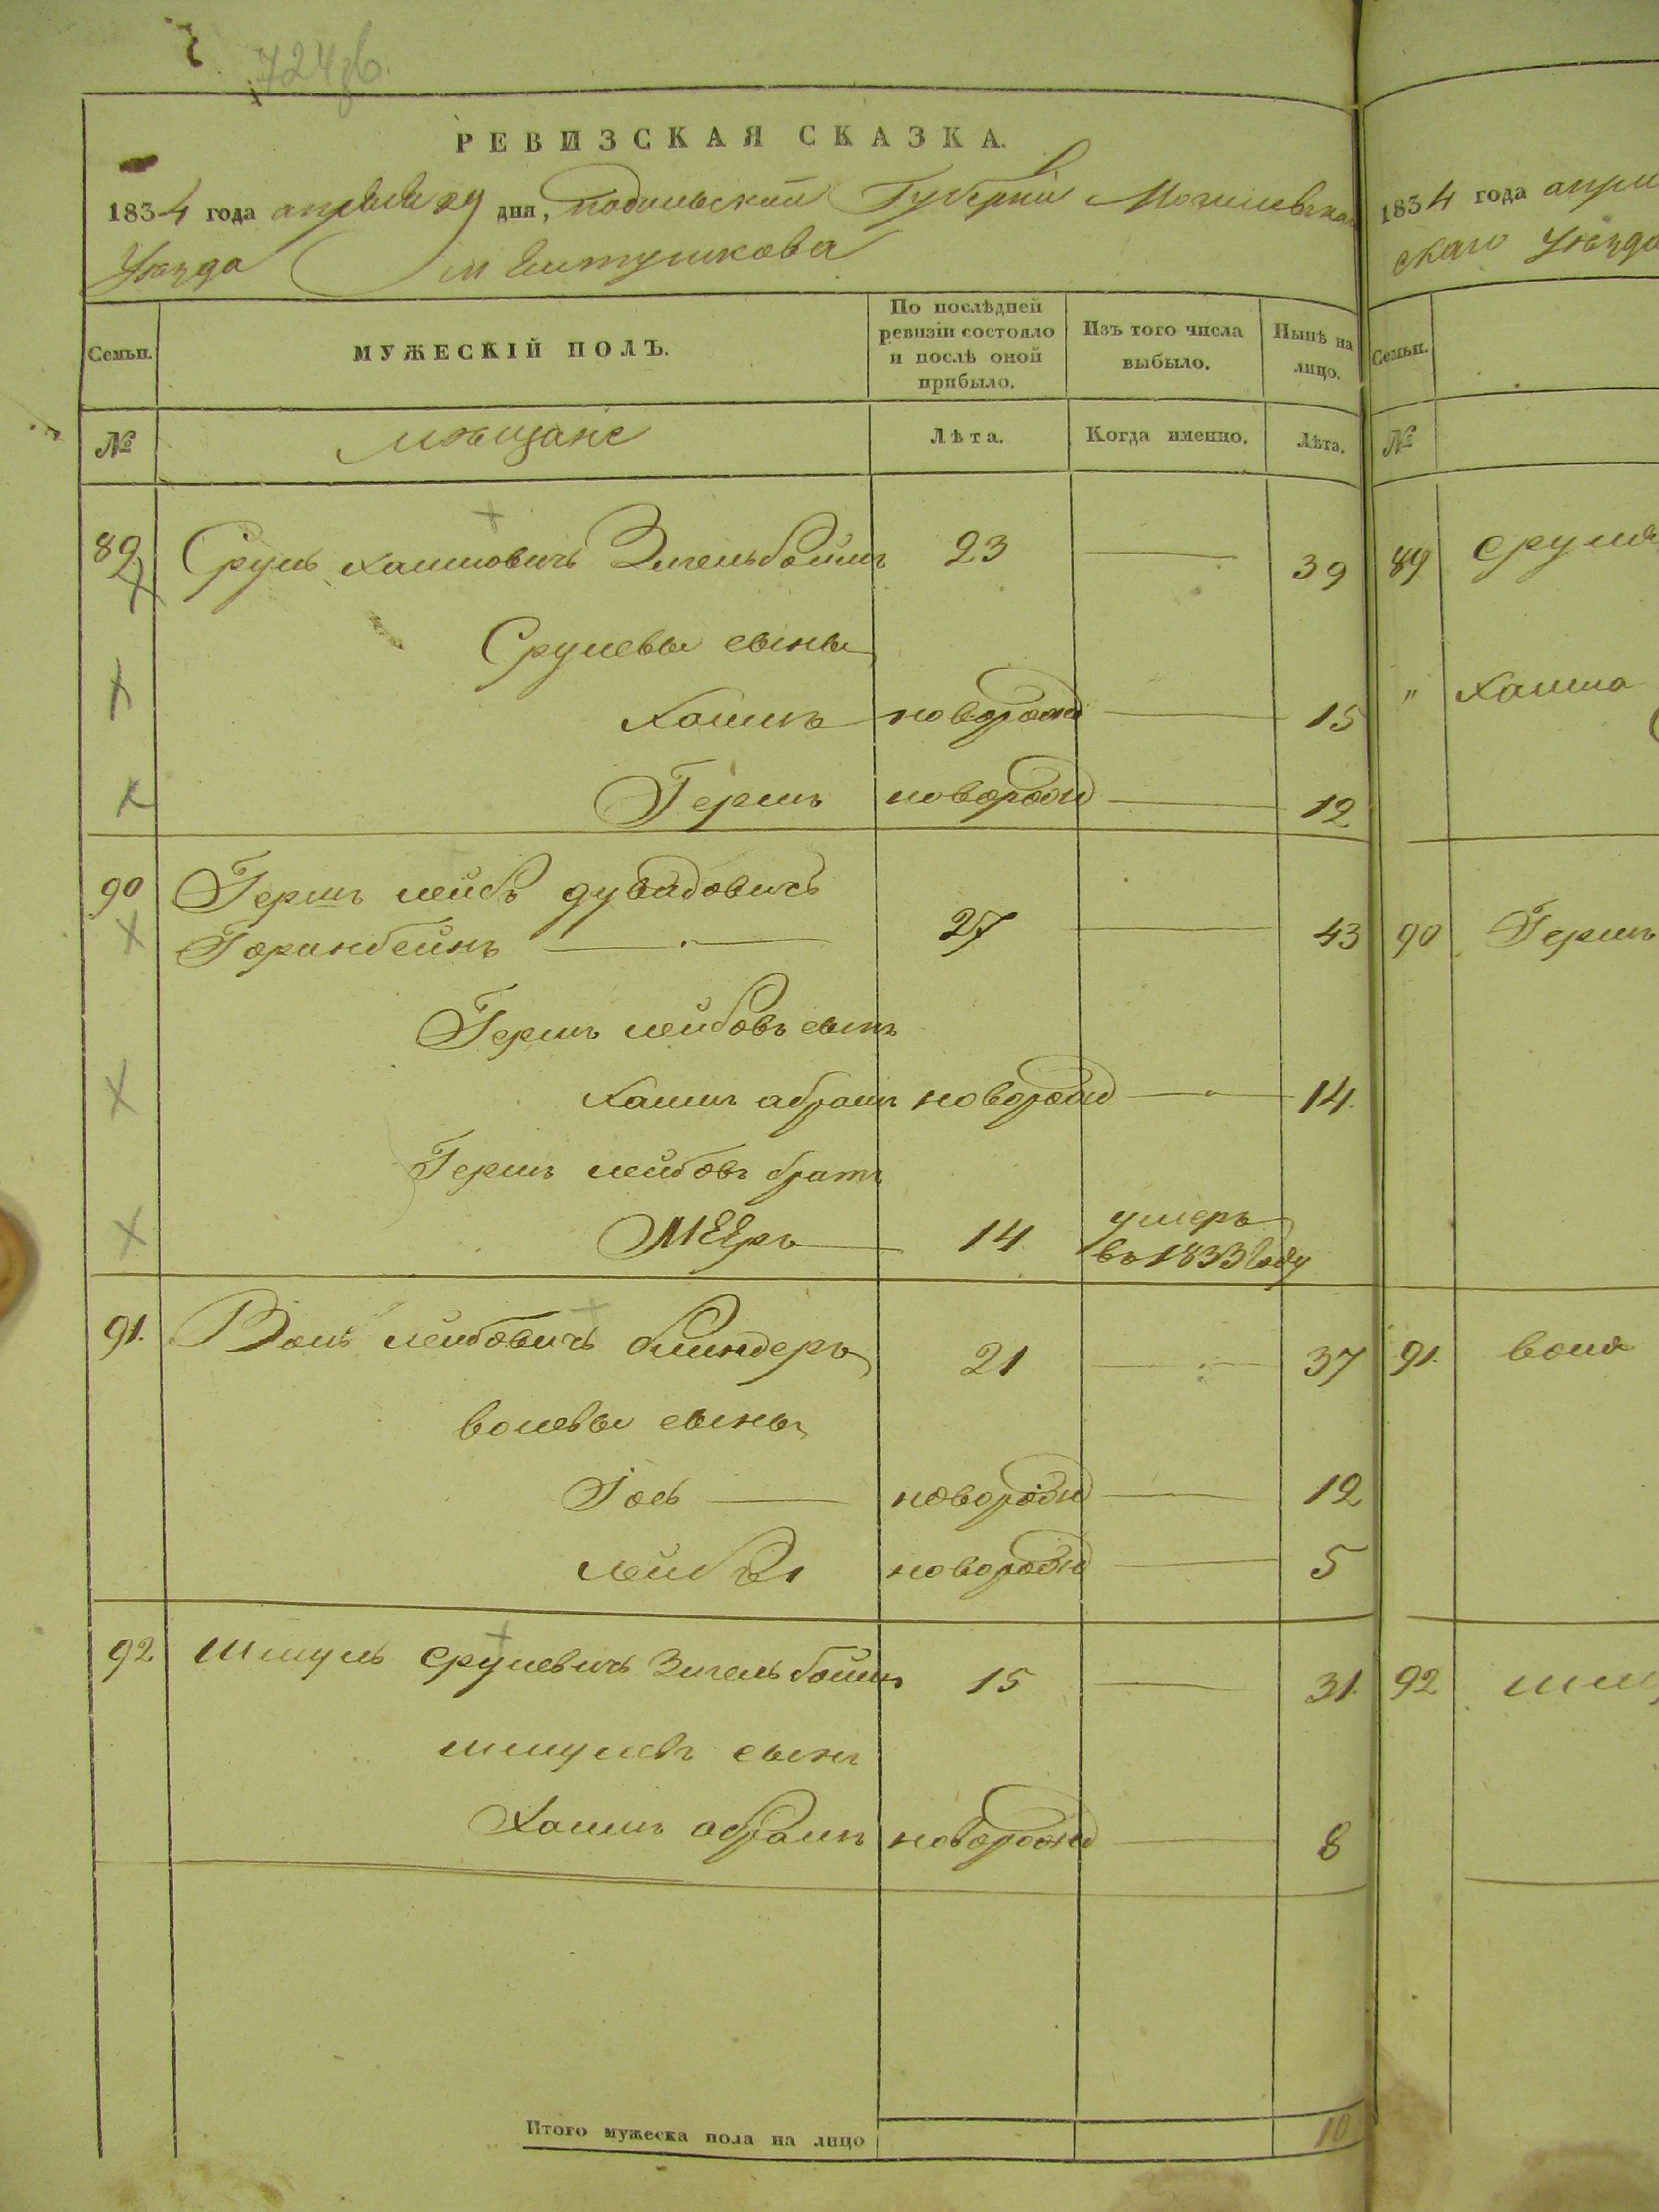 724об.
РЕВИЗСКАЯ СКАЗКА.
1834 года апреля 29 дня, подольской Губернiи Могилевскаго
Уѣзда м Ялтушкова
Семьи.
МУЖЕСКІЙ ПОЛЪ.
По послѣдней ревизіи состояло и послѣ оной прибыло.
Изъ того числа выбыло.
Нынѣ на лицо.
№
мѣщане
Лѣта.
Когда именно.
Лѣта.
89 Сруль хаимовичъ Зигельбоймъ 23 39
Срулевы сыны
Хаимъ новорожд 15
Гершъ новорожд 12
90 Гершъ лейбъ дувидовичъ
Горинбейнъ 27 43
Гершъ лейбовъ сынъ
Хаимъ абрамъ новорожд 14.
Гершъ лейбовъ братъ
Мееръ 14 умеръ
въ 1833 году
91. Волъ лейбовичъ блиндеръ 21 37
волевы сыны
Іось новорожд 12
лейба новорожд 5
92 Шмуль срулевичъ Зигельбоймъ 15 31.
шмулевъ сынъ
Хаимъ абрамъ новорожд 8
Итого мужеска пола на лицо 10
1834 года апрѣ
скаго Уѣзда
Семьи.
№
89 Сруля
" Хаима
90 Гершъ
91. воля
92 шму